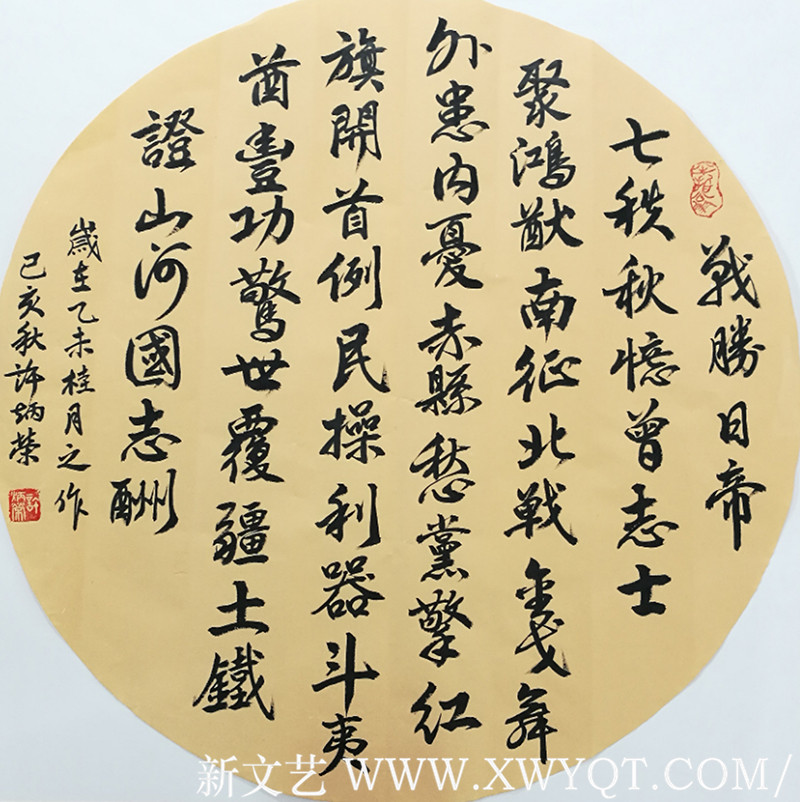 戰勝日帝
七秩秋憶曾志士
聚鴻猷南征北戰金戈舞
外患內憂赤縣愁黨擎紅
旗開首例民操利器斗夷
酋豐功驚世覆疆土鐵
證山河國志酬
歲在乙未桂月之作
己亥秋許炳榮
新文艺 WWW.XWYQT.COM/